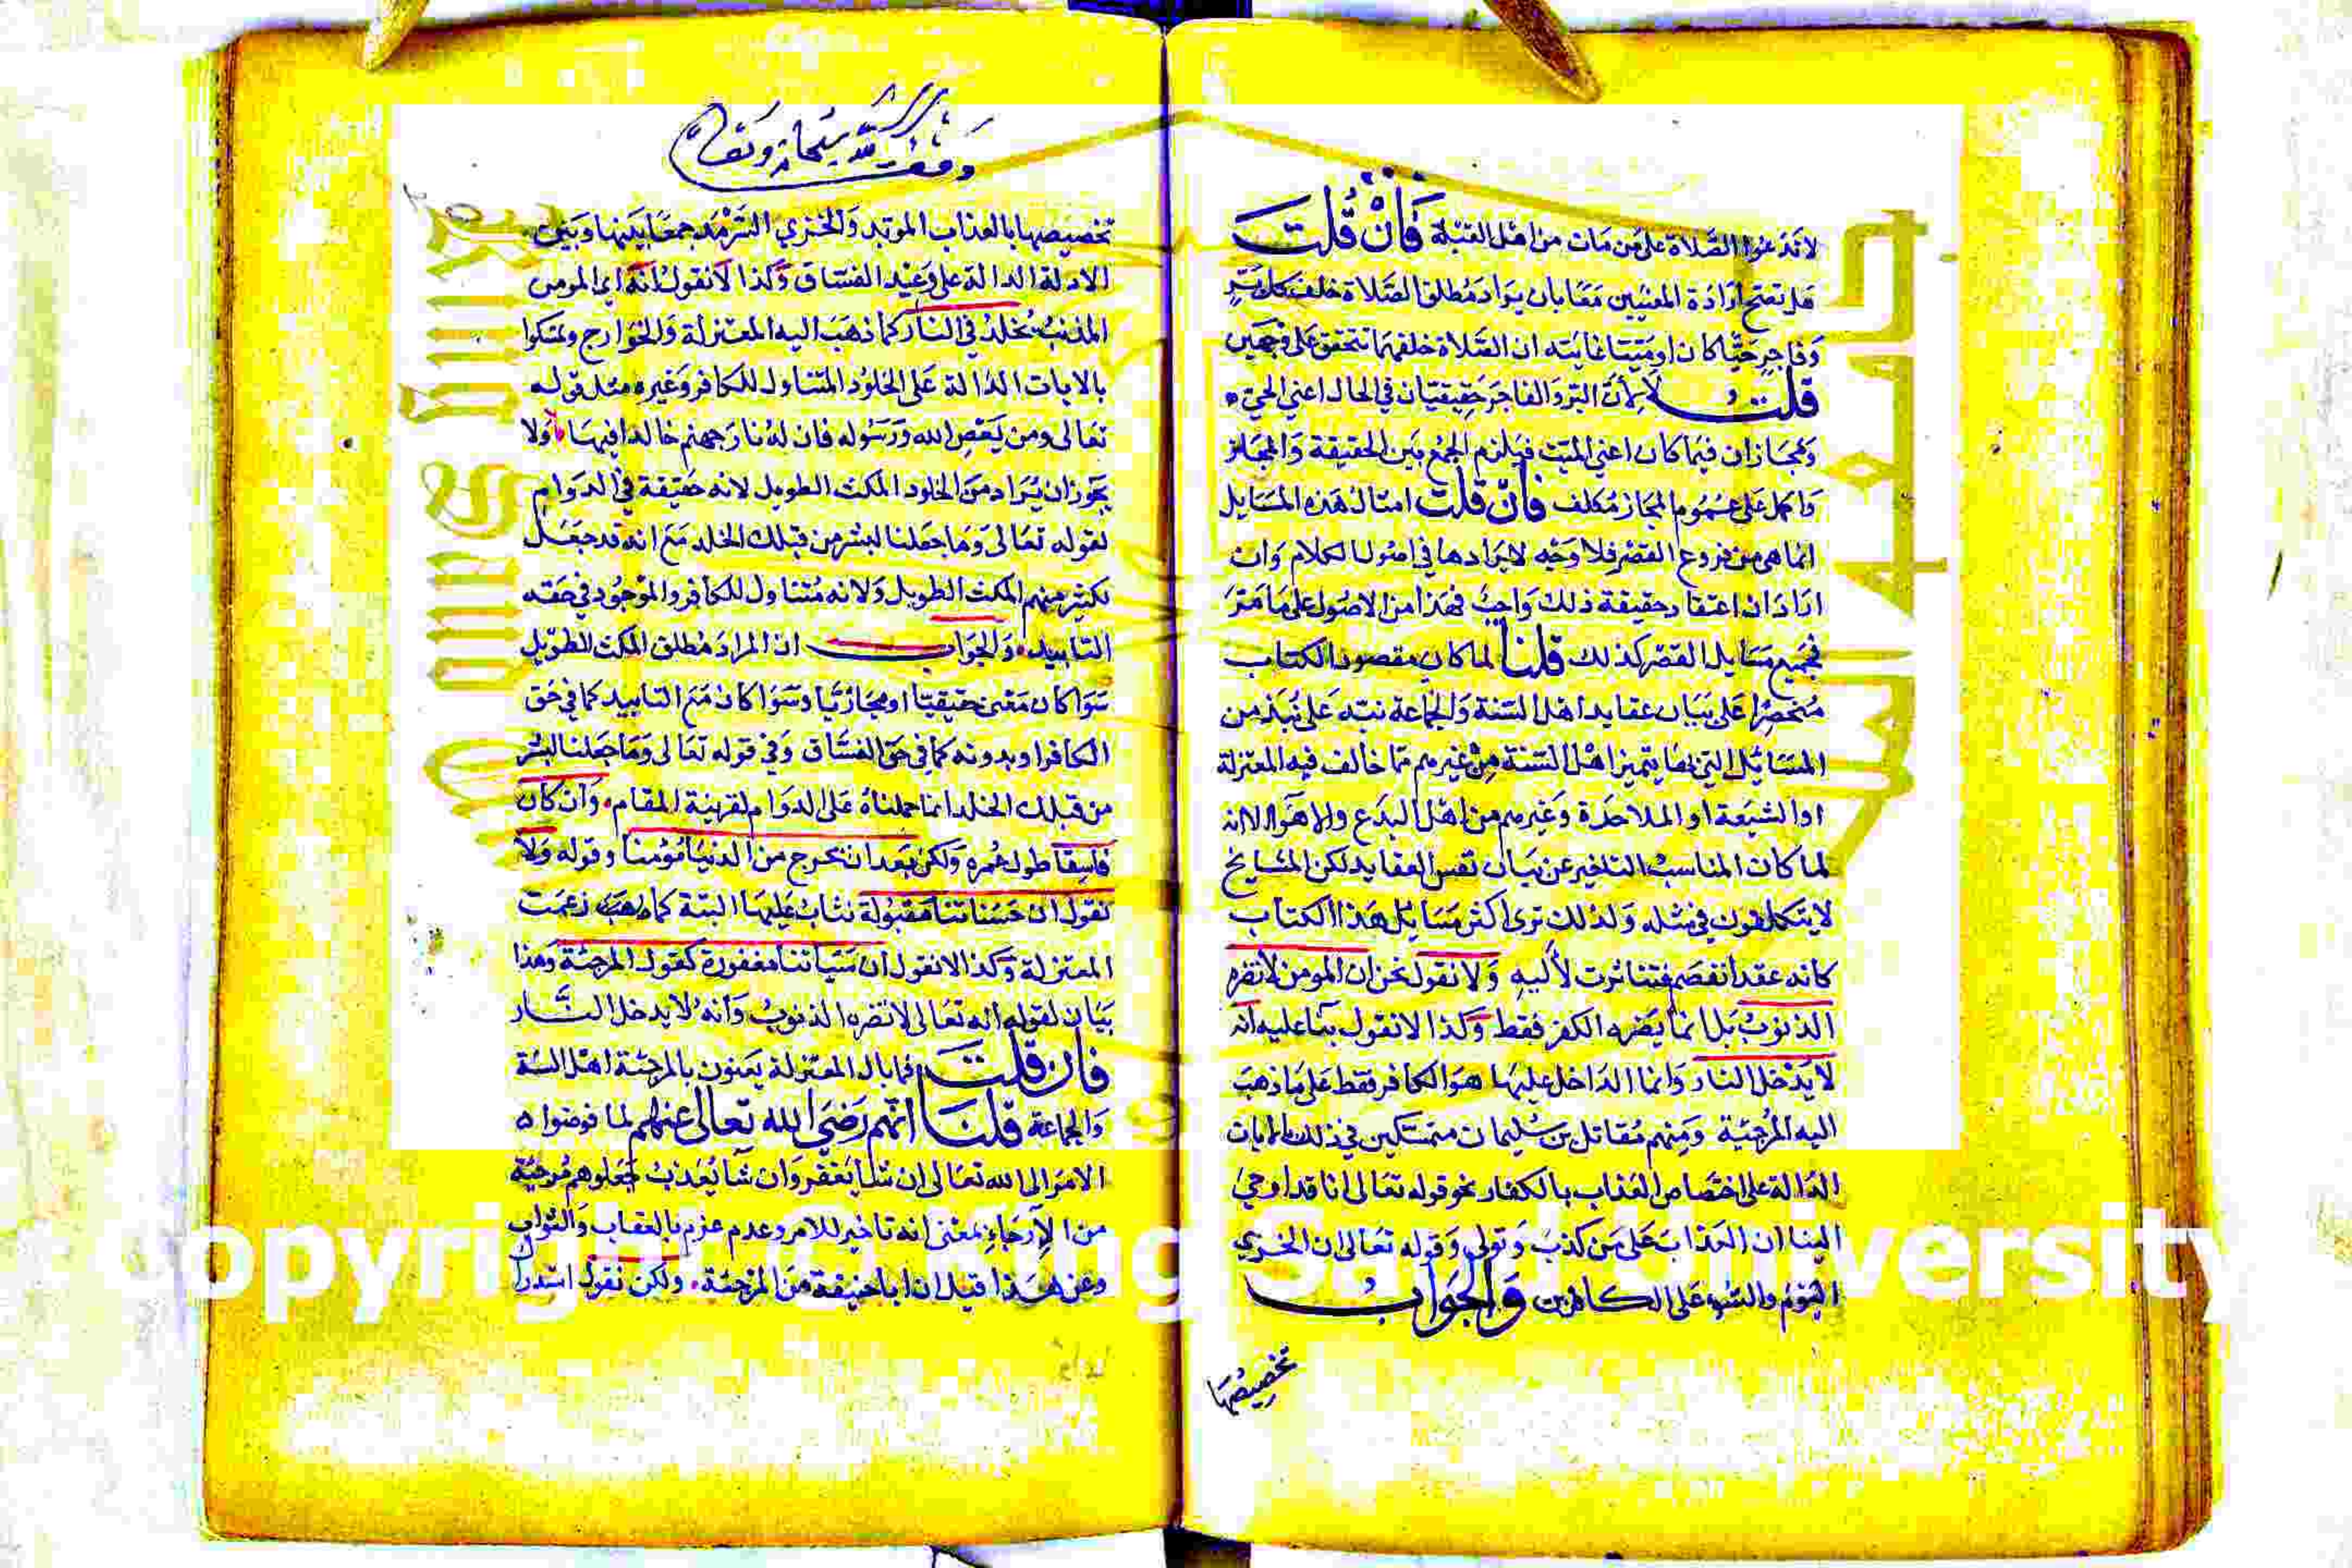 لا تدعوا الصلاة على من مات من اهل القبلة فان قلت
هل تصح ارادة المعنيين معا بان يراد مطلق الصلاة خلف كل بر
وفاجر حيا كان او ميتا غايته ان الصلاة خلفهما تتحقق على وجهين
قلت لا لان البر والفاجر حقيقيتان في الحال اعني الحي
ومجازان فيما كان اعني الميت فيلزم الجمع بين الحقيقة والمجاز
والحمل على عموم المجاز مكلف فان قلت امثال هذه المسايل
انما هى من فروع الفقه فلا وجه لايرادها في اصول الكلام وان
اراد ان اعتقاد حقيقة ذلك واجب فهذا من الاصول على ما مر
فجميع مسايل الفقه كذلك قلنا لما كان مقصود الكتاب
منحصرا على بيان عقايد اهل السنة والجماعة نبه على نبذ من
المسائل التي بها يتميز اهل السنة من غيرهم مما خالف فيه المعتزلة
او الشيعة او الملاحدة وغيرهم من اهل البدع والاهوا الا انه
لما كان المناسب التاخير عن بيان نفس العقايد لكن المشايخ
لا يتكلفون في مثله ولذلك ترى اكثر مسايل هذا الكتاب
كانه عقد انفصم فتناثرت لأليه ولا نقول نحن ان المومن لا تضره
الذنوب بل انما يضره الكفر فقط وكذا لا نقول بنا عليه انه
لا يدخل النار وانما الداخل عليها هو الكافر فقط على ما ذهب
اليه المرجئة ومنهم مقاتل بن سليمان متمسكين في ذلك بالايات
الدالة على اختصاص العذاب بالكفار نحو قوله تعالى انا قد اوحي
الينا ان العذاب على من كذب وتولى وقوله تعالى ان الخزي
اليوم والسوء على الكافرين والجواب
تخصيصها
وقف لله سبحانه وتعالى
تخصيصها بالعذاب الموبد والخزي السرمد جمعا بينها وبين
الادلة الدالة على وعيد الفساق وكذا لا نقول انه اي المومن
المذنب يخلد في النار كما ذهب اليه المعتزلة والخوارج وتمسكوا
بالايات الدالة على الخلود المتناول للكافر وغيره مثل قوله
تعالى ومن يعص الله ورسوله فان له نار جهنم خالدا فيها ولا
يجوز ان يراد من الخلود المكث الطويل لانه حقيقة في الدوام
لقوله تعالى وما جعلنا لبشر من قبلك الخلد مع انه قد جعل
لكثير منهم المكث الطويل ولانه متناول للكافر والموجود في حقه
التابيد والجواب ان المراد مطلق المكث الطويل
سوا كان معنى حقيقيا او مجازيا وسوا كان مع التابيد كما في حق
الكافر او بدونه كما في حق الفساق وفي قوله تعالى وما جعلنا لبشر
من قبلك الخلد انما حملناه على الدوام لقرينة المقام وان كان
فاسقا طول عمره ولكن بعد ان يخرج من الدنيا مؤمنا وقوله ولا
نقول ان حسناتنا مقبولة نثاب عليها البتة كما زعمت
المعتزلة وكذا لا نقول ان سيئاتنا مغفورة كقول المرجئة وهذا
بيان لقوله انه تعالى لا تضره الذنوب وانه لا يدخل النار
فان قلت فما بال المعتزلة يعنون بالمرجئة اهل السنة
والجماعة قلنا انهم رضي الله تعالى عنهم لما فوضوا
الامر الى الله تعالى ان شا يغفر وان شا يعذب جعلوهم مرجئة
من الارجاء بمعنى انه تاخير للامر وعدم عزم بالعقاب والثواب
وعن هذا قيل ان ابا حنيفة من المرجئة ولكن نقول استدرا
جامعة الملك سعود
Copyright © King Saud University